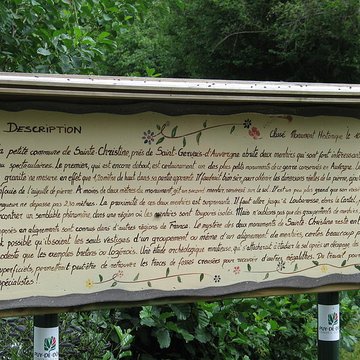 DESCRIPTION
Classé Monument Historique le
petite commune de Sainte-Christine, près de Saint-Gervais-d'Auvergne abrite deux menhirs qui sont fort intéressants
spectaculaires. Le premier, qui est encore debout, est certainement un des plus petits monuments de ce genre conservés en Auvergne.
granite ne mesure en effet que 1,20 mètre de haut dans sa partie apparente. Il faudrait bien sûr, pour obtenir les dimensions réelles de la pierre,
enfouie de l'aiguille de pierre. A moins de deux mètres du monument gît un second menhir renversé sur le sol. Il est un peu plus grand que son
ne dépasse pas 2,50 mètres. La proximité de ces deux menhirs est surprenante. Il faut aller jusqu'à Loubaresse, dans le Cantal,
rencontrer un semblable phénomène dans une région où les menhirs sont toujours isolés. Mais n'oublions pas que des groupements de menhirs
en alignements sont connus dans d'autres régions de France. Le mystère des deux monuments de Sainte Christine reste
possible qu'ils soient les seuls vestiges d'un groupement ou même d'un alignement de menhirs, certes beaucoup plus
modeste que les exemples bretons ou lozériens. Une étude archéologique minutieuse, qui s'attacherait à étudier le sol après un décapage
superficiel, permettrait peut-être de retrouver les traces de fosses creusées pour recevoir d'autres mégalithes. Du travail pour
spécialistes!
PUY-DE-DÔME
PUY-DE-DÔME